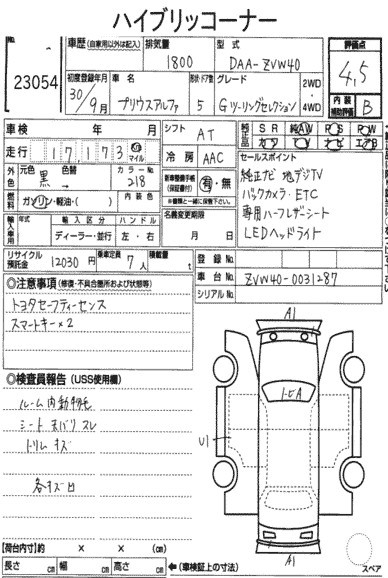 ハイブリッコーナー
No.
23054
車歴 (自家用以外は記入) 排気量 1800 型式 DAA-ZVW40
評価点 4,5
内装補助評価 B
初度登録年月 30/9月 車名 プリウスアルファ 形状・ドア数 5 グレード Gツーリングセレクション 2WD・4WD
車検 年 月
走行 17,173 km マイル
シフト AT
冷房 AAC
純正品 SR AW PS PW
カワ ナビ エアB
セールスポイント
純正ナビ 地デジTV
バックカメラ・ETC
専用ハーフレザーシート
LEDヘッドライト
外色 元色 黒 → 色替 カラーNo. 218 内装色
燃料 ガソリン・軽油・( )
新車整備手帳(保証書付) 有・無
名義変更期限 月 日
輸入車用 年式 輸入区分 ディーラー・並行 ハンドル 左・右
リサイクル預託金 12030円 乗車定員 7人 積載量 t
登録No.
車台No. ZVW40-0031287
シリアルNo.
◎注意事項 (修復・不具合箇所および状態等)
トヨタセーフティーセンス
スマートキー×2
◎検査員報告 (USS使用欄)
ルーム内動物毛
シート スレ
トリム キズ
各キズ凹
A1
U1
A1
スペア
【荷台内寸】約 × × (cm)
長さ cm 幅 cm 高さ cm ←(車検証上の寸法)